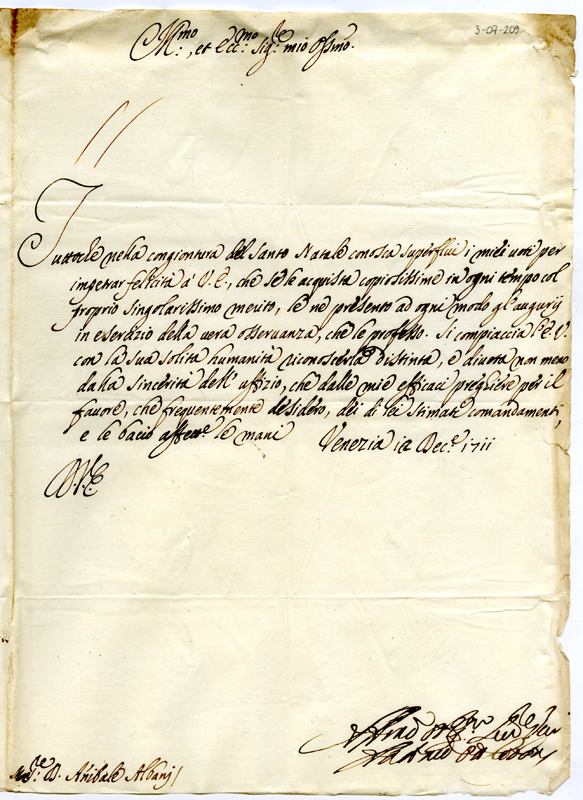 3-07-209
Ill:mo, et Ecc:mo Sig:re mio Oss:mo.
Tuttoche nella congiontura del Santo Natale conosca superflui i miei voti per
impetrar felicità à V. E., che se le acquista copiosissime in ogni tempo col
proprio singolarissimo merito, le ne presento ad ogni modo gl'augurij
in esercizio della vera osservanza, che le professo. Si compiaccia l'E. V.
con la sua solita humanità riconoscerla distinta, e divota non meno
dalla sincerità dell' uffizio, che dalle mie efficaci preghiere per il
favore, che frequentemente desidero, dei di lei stimati comandamenti,
e le bacio affett.e le mani Venezia 12 Dec.e 1711
D. V. E.
D. Anibale Albanj